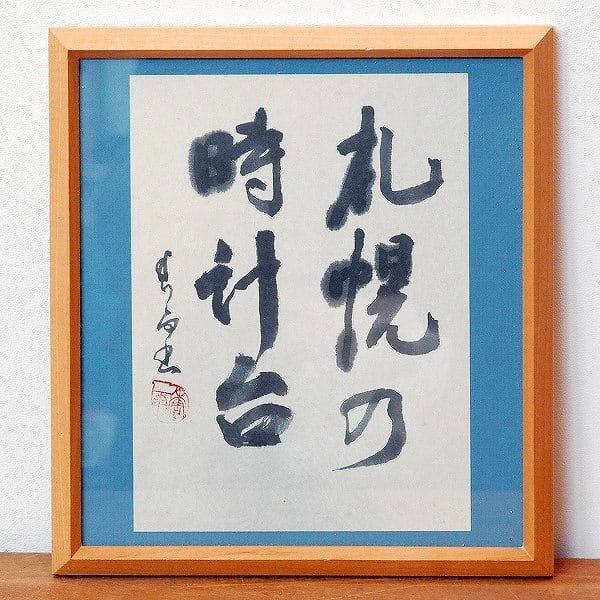 札幌の
時計台